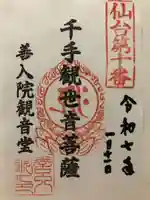 仙台第十番
令和七年
一月十一日
千手観世音菩薩
善入院観音堂